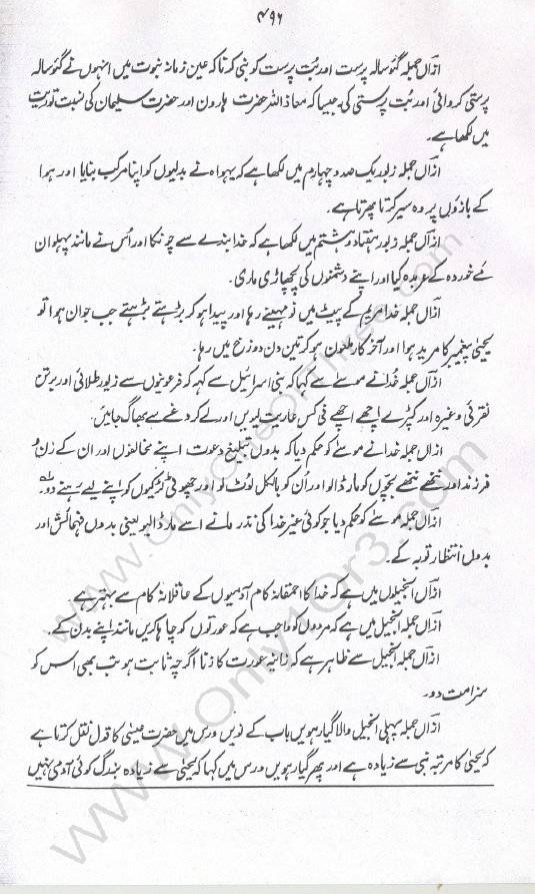 ۴۹۶
ازاں جملہ گئوسالہ پرست اور بُت پرست کو نبی کرنا کہ عین زمانہ نبوت میں انہوں نے گئوسالہ
پرستی کروائی اور بُت پرستی کی جیسا کہ معاذاللہ حضرت ہارون اور حضرت سلیمان کی نسبت توریت
میں لکھا ہے۔
ازاں جملہ زبور یک صد و چہارم میں لکھا ہے کہ یہوواہ نے بدلیوں کو اپنا مرکب بنایا اور ہوا
کے بازوں پر وہ سیر کرتا پھرتا ہے۔
ازاں جملہ زبور ہفتاد و ہشتم میں لکھا ہے کہ خدا بندے سے چونکا اور اُس نے مانند پہلوان
مَے خوردہ کے عربدہ کیا اور اپنے دشمنوں کی پچھاڑی ماری۔
ازاں جملہ خدا مریم کے پیٹ میں نو مہینے رہا اور پیدا ہو کر بڑہتے بڑہتے جب جوان ہوا تو
یحییٰ پیغمبر کا مرید ہوا اور آخر کار ملعون ہو کر تین دن دوزخ میں رہا۔
ازاں جملہ خُدا نے موسےٰ سے کہا کہ بنی اسرائیل سے کہہ کہ فرعونیوں سے زیور طلائی اور برتن
نقرئی وغیرہ اور کپڑے اچھے اچھے فی کس عاریت لیویں اور لے کر دغے سے بھاگ جائیں۔
ازاں جملہ خدا نے موسےٰ کو حکم دیا کہ بدوں تبلیغ دعوت اپنے مخالفوں اور ان کے زن و
فرزند اور ننھے ننھے بچّوں کو مار ڈالو اور اُن کو بالکل لوٹ لو اور چھوٹی لڑکیوں کو اپنے لیے رہنے دو۔
ازاں جملہ موسےٰ کو حکم دیا جو کوئی غیر خدا کی نذر مانے اسے مار ڈالیو یعنی بدوں فہمائش اور
بدوں انتظار توبہ کے۔
ازاں انجیلوں میں ہے کہ خدا کا احمقانہ کام آدمیوں کے عاقلانہ کام سے بہتر ہے۔
ازاں جملہ انجیل میں ہے کہ مردوں کو واجب ہے کہ عورتوں کو چاہا کریں مانند اپنے بدن کے۔
ازاں جملہ انجیل سے ظاہر ہے کہ زانیہ عورت کا زنا اگرچہ ثابت ہو تب بھی اس کو
سزا مت دو۔
ازاں جملہ پہلی انجیل والا گیارہویں باب کے نویں ورس میں حضرت عیسیٰ کا قول نقل کرتا ہے
کہ یحییٰ کا مرتبہ نبی سے زیادہ ہے اور پھر گیارہویں ورس میں کہا کہ یحییٰ سے زیادہ بزرگ کوئی آدمی نہیں
www.OnlyOneOrThree.com
www.Only1Or3.com